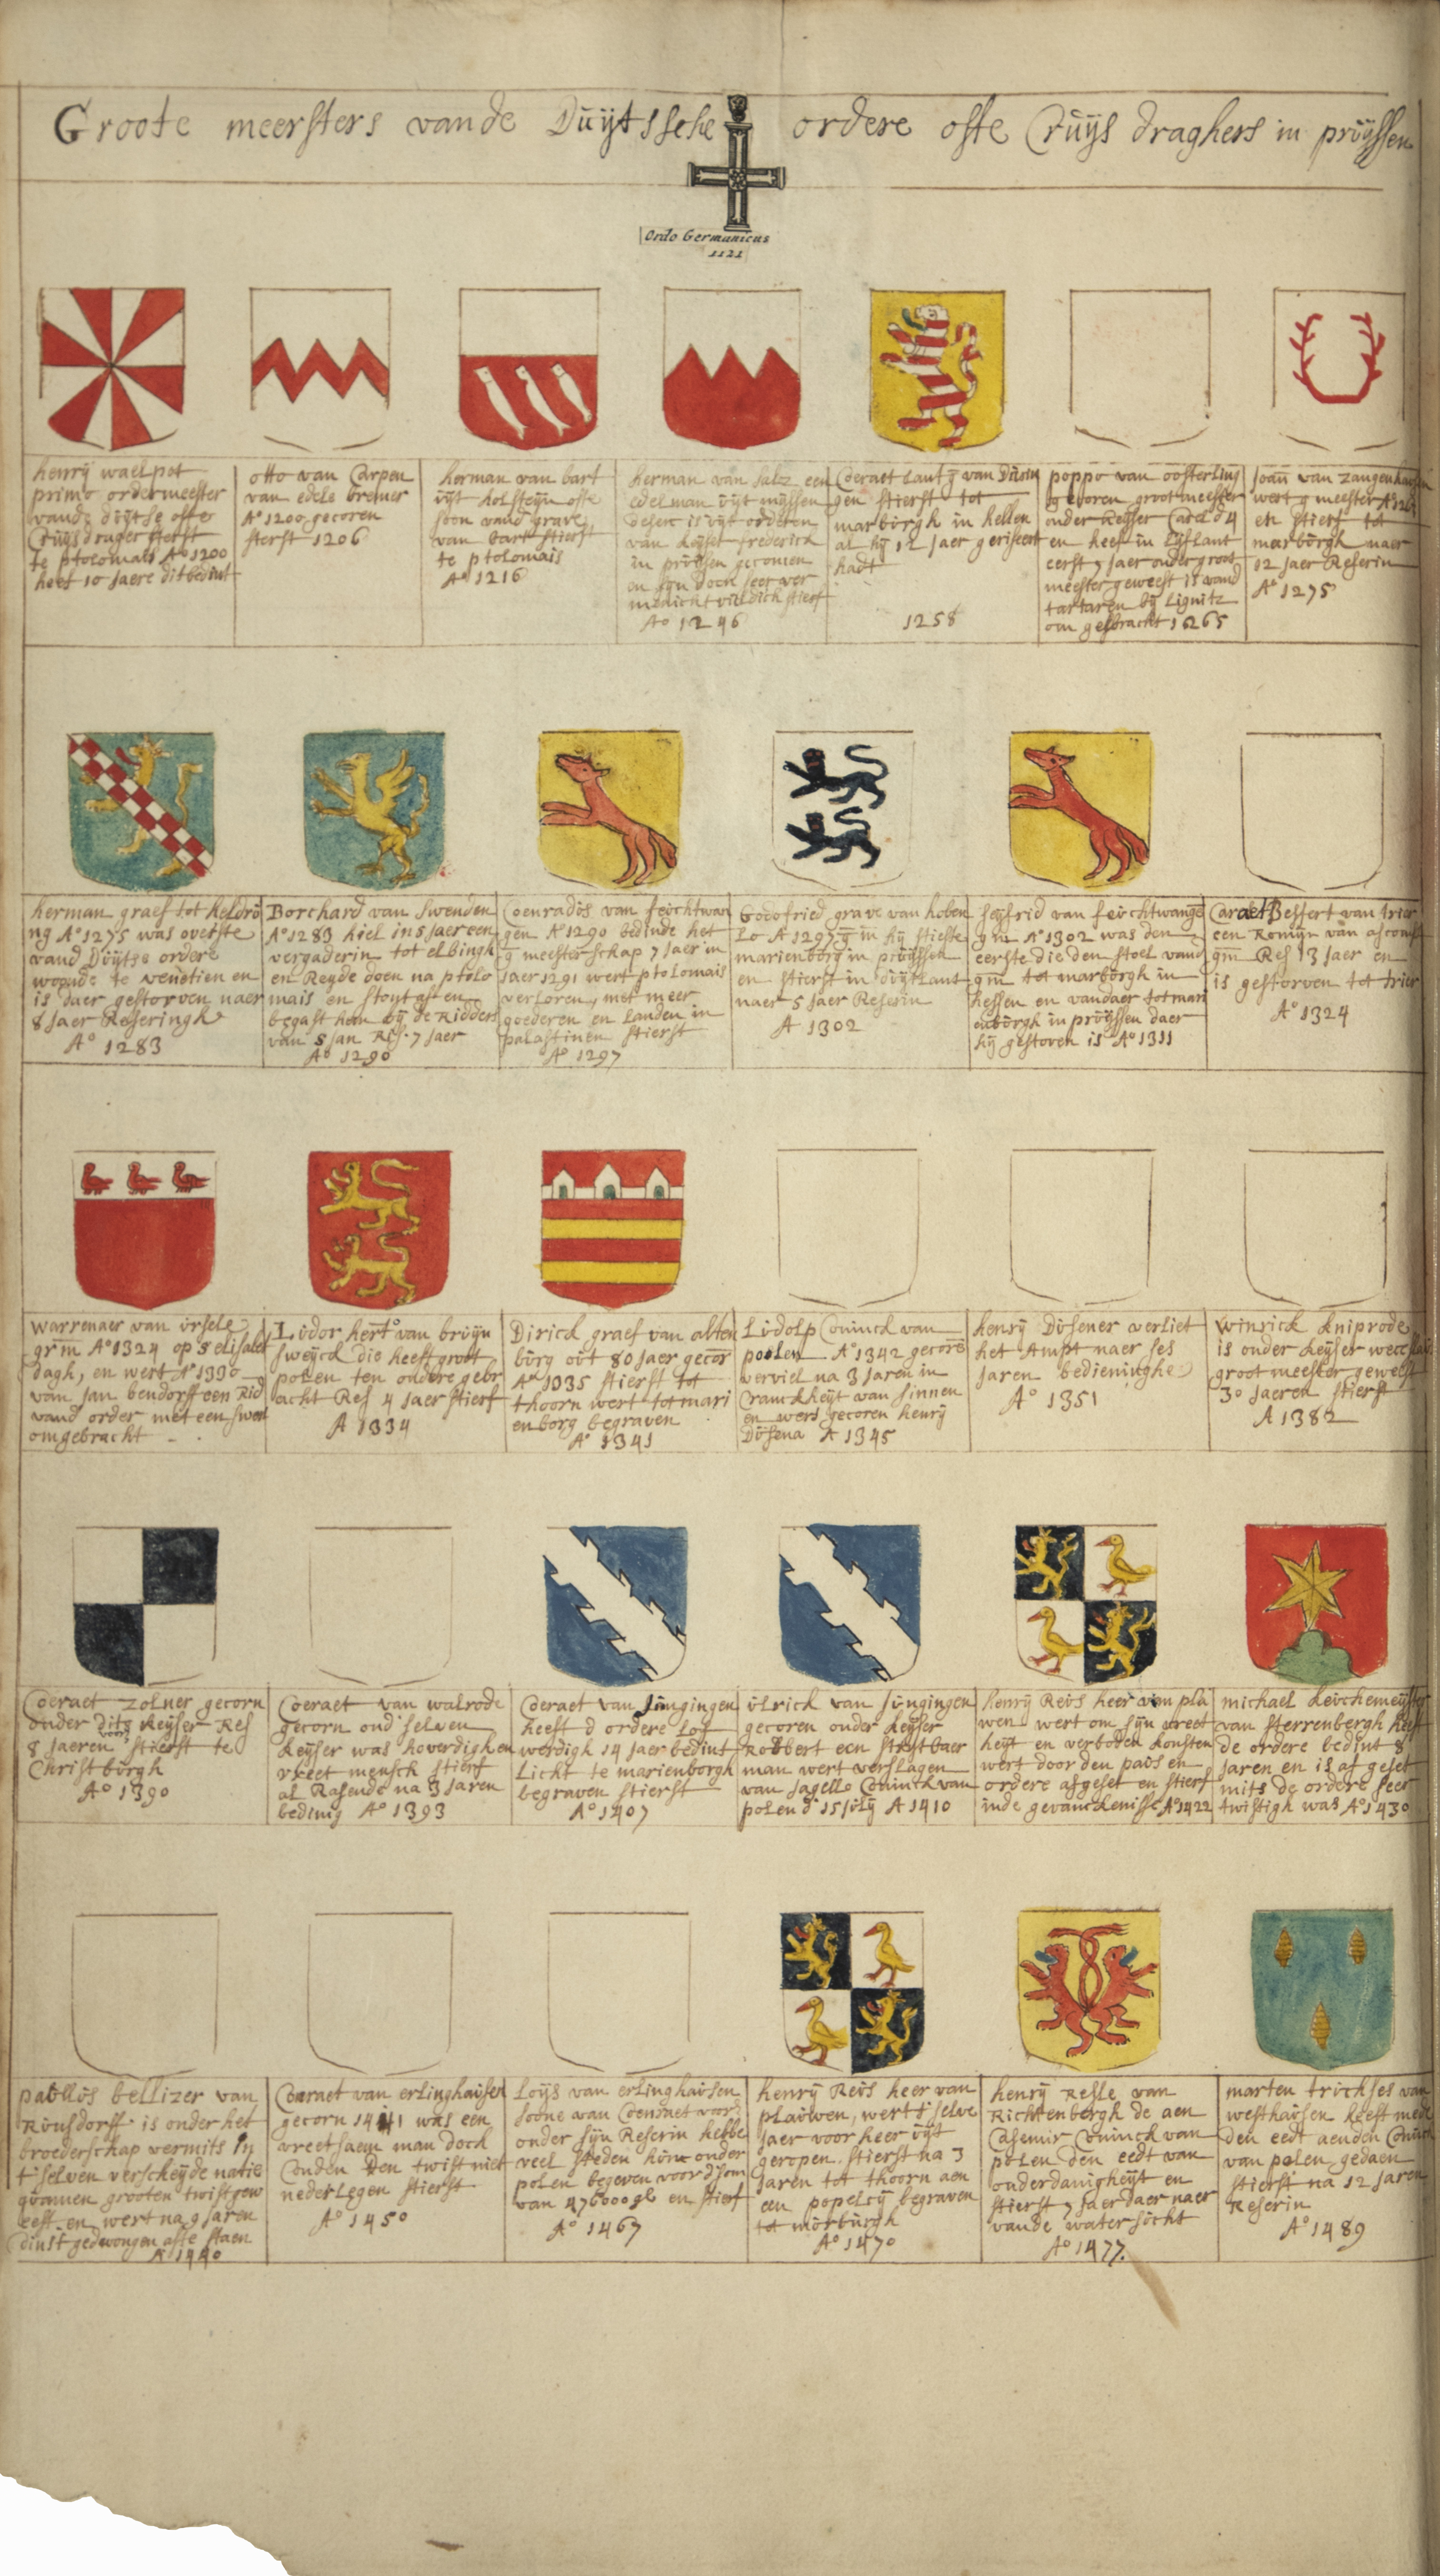 Groote meersters vande Duÿtssche ordere ofte Cruÿs draghers in prüÿssen
Ordo Germanicus
1121
henrÿ waelpot
primo ordermeester
vande düÿtse ofte
Crüÿsdrager sterft
te ptolomais A° 1200
heeft 10 Jaere dit bedint
otto van Carpen
van edele bremer
A° 1200 gecoren
sterft 1206
herman van bart
üÿt holsteÿn ofte
soon vand grave
van bart stierf
te ptolomais
A° 1216
herman van saltz een
edelman üÿt mÿssen
desen is üÿt
van keÿser frederick
in prüssen gecomen
en sÿn doen seer ver
stierf
A° 1246
Coeraet lantg van Dürin
gen stierft tot
marbürgh in hessen
al hÿ 12 Jaer geriseert
hadt
1258
poppo van oosterling
geooren grootmeester
onder keÿser Carel d 4
en heef in lÿflant
eerst 7 jaer onder groot
meester geweest is vand
tartaren bÿ Lignitz
om gebracht 1265
Joan van zangenhausen
wert g meester A°
en stierf tot
marborgh naer
12 jaer Reserin
A° 1275
herman graef tot heldrü
ng A° 1275 was overste
vand Düÿtse ordere
woonde te venetien en
is daer gestorven naer
8 Jaer Reseringh
A° 1283
Borchard van Swenden
A° 1283 hiel in 5 Jaer een
vergaderin tot elbingh
en Reÿde doen na ptolo
mais en
begaft hem bÿ de Ridders
van S Jan Res. 7 Jaer
A° 1290
Coenradüs van feüchtwan
gen A° 1290 bediude het
g meesterschap 7 Jaer in
Jaer 1291 wert ptolomais
verloren, met meer
goederen en landen in
palastinen stierft
A° 1297
Godofried grave van hohen
Lo A 1297 g m hÿ stiefte
marienborg in prüssen
en stierft in düÿtlant
naer 5 Jaer Reserin
A 1302
seÿfrid van feüchtwange
g m A° 1302 was den
eerste die den stoel vand
g m tot marborgh in
hessen en vandaer tot mari
enborgh in prüÿssen daer
hÿ gestoven is A° 1311
Caraet Bessert van trier
een Romÿn van
g m Res 13 Jaer en
is gestorven tot trier
A° 1324
Warrenaer van ürsele
gr m A° 1324 op S elisabet
dagh, en wert A° 1330
van Jan bendorff een Rid
vand order met een swert
omgebracht
Lüdor hert° van brüÿn
sweÿck die heeft groot
polen ten ondere gebr
acht Res 4 Jaer stierf
A 1334
Dirick graef van alten
bürg oüt 80 Jaer gecor
A° 1335 stierft tot
thoorn wert tot mari
enborg begraven
A° 1341
Lüdolp Coninck van
poolen A° 1342 gecore
verviel na 3 Jaren in
Cranckheÿt van sinnen
en wert gecoren henrÿ
Düsena A 1345
henrÿ Düsener verliet
het Ampt naer ses
Jaren bedieninghe
A° 1351
Winrick kniprode
is onder keÿser
groot meester geweest
30 Jaeren stierft
A 1382
Coeraet Zolner gecorn
onder dits keÿser Res
8 Jaeren stierft te
Christbürgh
A° 1390
Coeraet van walrode
gecorn ond' selven
keÿser was hoverdigh en
vreet mensch stierf
al Rasende na 3 Jaren
bedinig A° 1393
Coeraet van Jüngingen
heeft d ordere Lof
werdigh 14 Jaer bedint
Licht te marienborgh
begraven stierft
A° 1407
ülrick van Jüngingen
gecoren onder keÿser
Robbert een strÿtbaer
man wert verslagen
van Jagello Coninck van
polen d' 15 Jülÿ A 1410
henrÿ Reüs heer van pla
wen wert om sÿn vreet
heÿt en verboden konsten
wert door den paüs en
ordere afgeset en stierf
inde gevanckenisse A° 1422
michael keüchemeÿster
van sterrenbergh heeft
de ordere bedint 8
Jaren en is af geset
mits de ordere seer
twistigh was A° 1430
paüllüs bellizer van
Rüusdorff is onder het
broederschap vermits in
t'selven verscheÿde natie
quamen grooten twist gew
eest en wert na 9 Jaren
dinst gedwongen afte staen
A° 1440
Coeraet van erlinghaüsen
gecorn 1441 was een
vreetsaem man doch
Conden den twist niet
nederlegen stierft
A° 1450
Loÿs van erlinghaüsen
soone van Coenraet voor
onder sÿn Reserin hebbe
veel steden hün onder
polen begeven voor d'som
van 476000 gl en stierf
A° 1467
henrÿ Reüs heer van
plaüwen, wert t'selve
Jaer voor heer üÿt
geropen. stierft na 3
Jaren tot thoorn aen
een popelcÿ begraven
tot morbürgh
A° 1470
henrÿ Refle van
Richtenbergh de aen
Casemir Coninck van
polen den eedt van
onderdanigheÿt en
stierft 7 Jaer daer naer
vande watersücht
A° 1477.
marten trückses van
westhaüsen heeft mede
den eedt aenden Coninck
van polen gedaen
stierft na 12 Jaren
Reserin
A° 1489